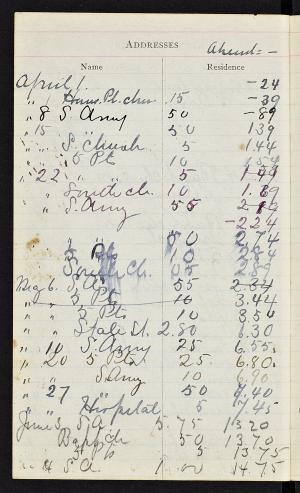 ADDRESSES Ahead = -
Name Residence
April 1. - 24
" 1 Hanv. Pl. Chu .15 - 39
" 8 S. Army 50 - 89
" 15 " 50 139
" " S. Church 5 1.44
" " 5 Pt 10 1.54
" 22 " 5 1.49
" " South Ch. 10 1.89
" " S. Army 55
- 2.24
" " " 50 2.74
" " 5 Pt 10 2.84
" " South Ch. 05 2.89
May 6. S. A. 55 2.84
" " 5 Pt 10 3.44
" " 5 Pts 10 3.54
" " State St. 2.80 6.30
" 10 S. Army 25 6.55
" 20 5 Pts 25 6.80
" " S. Army 10 6.90
" 27 " 50 7.40
" " Hospital 5 7.45
June 3 S A 5.75 13.20
" " Bap. ch 50 13.70
" " 5 Pt 5 13.75
" 4 S. A. 1.00 14.75